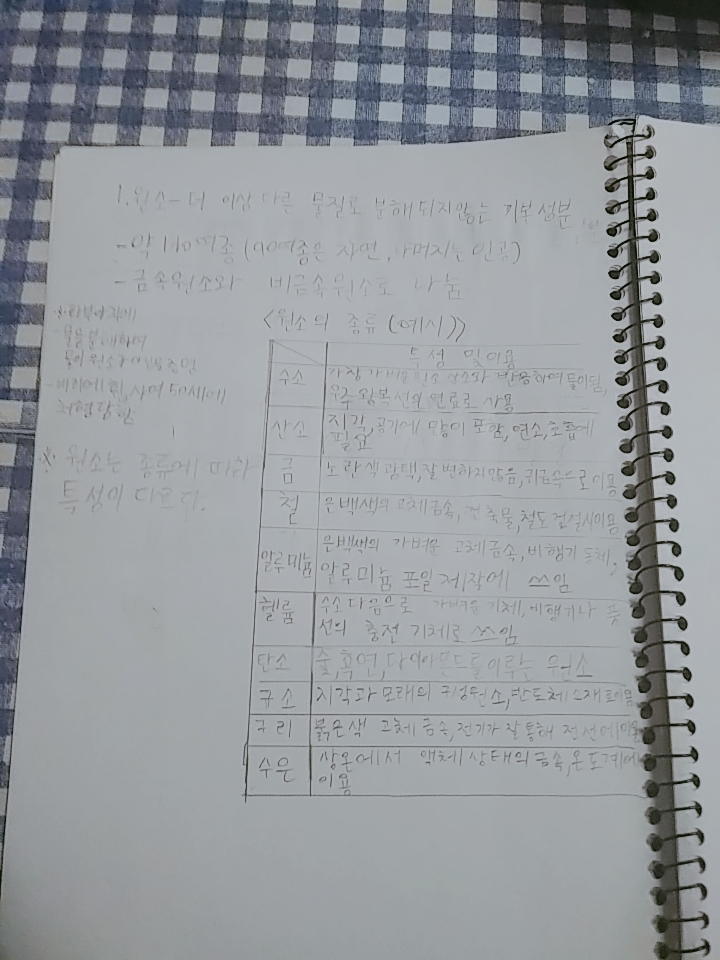 1. 원소 - 더 이상 다른 물질로 분해 되지않는 기본 성분
- 약 110여종 (90여종은 자연, 나머지는 인공)
- 금속원소와 비금속원소로 나눔
물을 분해하여
사며 50세에
처형당함
※ 원소는 종류에 따라
특성이 다르다.
<원소의 종류 (예시)>
특성 및 이용
수소 가장 가벼운 원소 산소와 반응하여 물이됨,
우주 왕복선의 연료로 사용
산소 지각, 공기에 많이 포함, 연소, 호흡에
필요
금 노란색 광택, 잘 변하지않음, 귀금속으로 이용
철 은백색의 고체금속, 건축물, 철도 건설시이용
알루미늄 은백색의 가벼운 고체 금속, 비행기 동체,
알루미늄 포일 제작에 쓰임
헬륨 수소 다음으로 가벼운 기체, 비행기나 풍
선의 충전 기체로 쓰임
탄소 숯, 흑연, 다이아몬드를 이루는 원소
규소 지각과 모래의 구성원소, 반도체 소재로이용
구리 붉은색 고체 금속, 전기가 잘 통해 전선에이용
수은 상온에서 액체 상태의 금속, 온도계에
이용